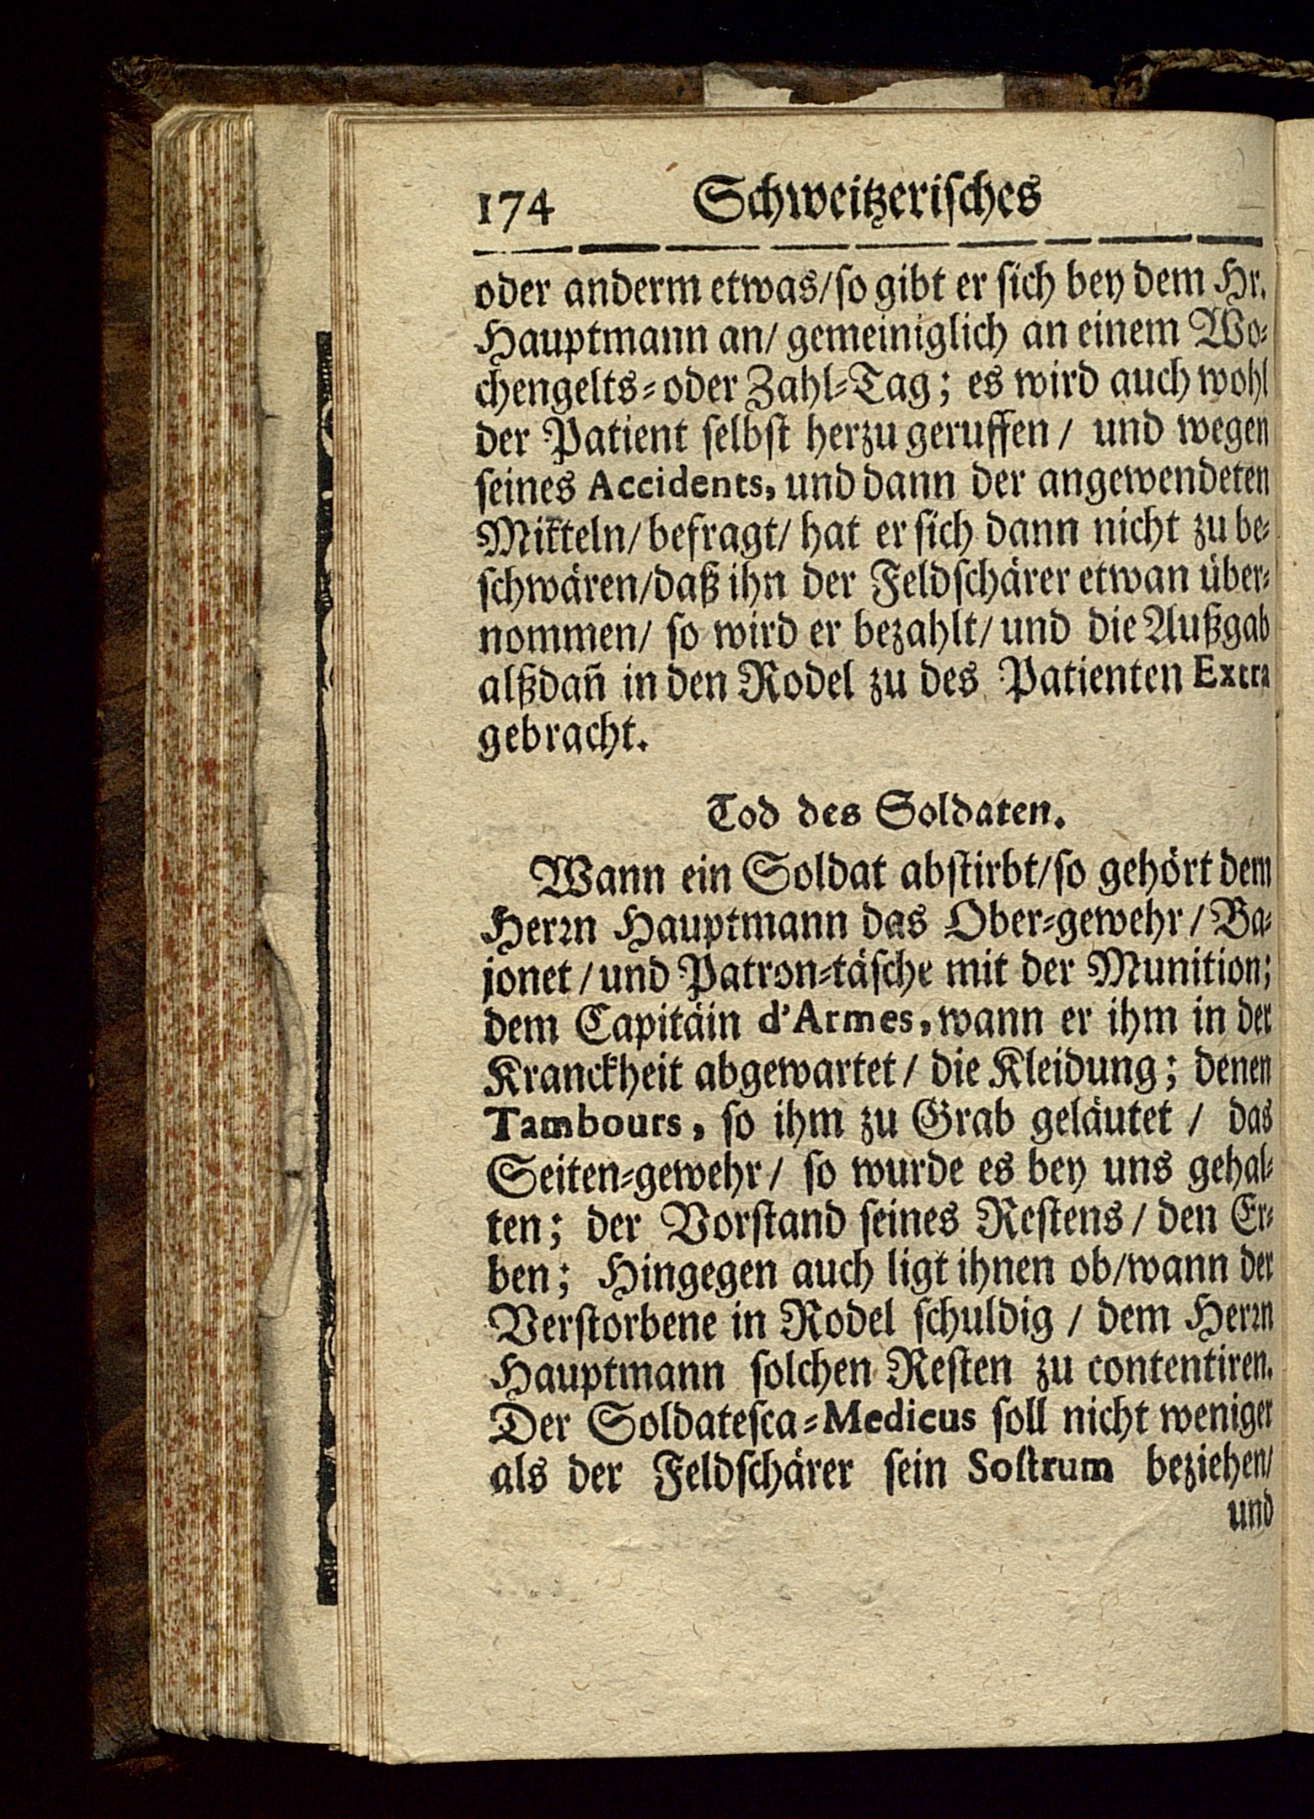 174 Schweitzerisches
oder anderm etwas/so gibt er sich bey dem Hr.
Hauptmann an/ gemeiniglich an einem Wo-
chengelts-oder Zahl-Tag; es wird auch wohl
der Patient selbst herzu geruffen/ und wegen
seines Accidents, und dann der angewendeten
Mitteln/ befragt/ hat er sich dann nicht zu be-
schwären/daß ihn der Feldschärer etwan über-
nommen/ so wird er bezahlt/ und die Außgab
alßdañ in den Rodel zu des Patienten Extra
gebracht.
Tod des Soldaten.
Wann ein Soldat abstirbt/so gehört dem
Herrn Hauptmann das Ober-gewehr/ Ba-
jonet/ und Patron-täsche mit der Munition;
dem Capitäin d'Armes, wann er ihm in der
Kranckheit abgewartet/ die Kleidung; denen
Tambours, so ihm zu Grab geläutet/ das
Seiten-gewehr/ so wurde es bey uns gehal-
ten; der Vorstand seines Restens/ den Er-
ben; Hingegen auch ligt ihnen ob/wann der
Verstorbene in Rodel schuldig/ dem Herrn
Hauptmann solchen Resten zu contentiren.
Der Soldatesca-Medicus soll nicht weniger
als der Feldschärer sein Sostrum beziehen/
und